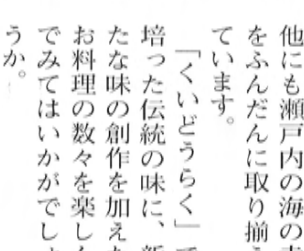 他にも瀬戸内の海の
をふんだんに取り揃
ています。
「くいどうらく」
培った伝統の味に、
たな味の創作を加え
お料理の数々を楽し
でみてはいかがでし
うか。